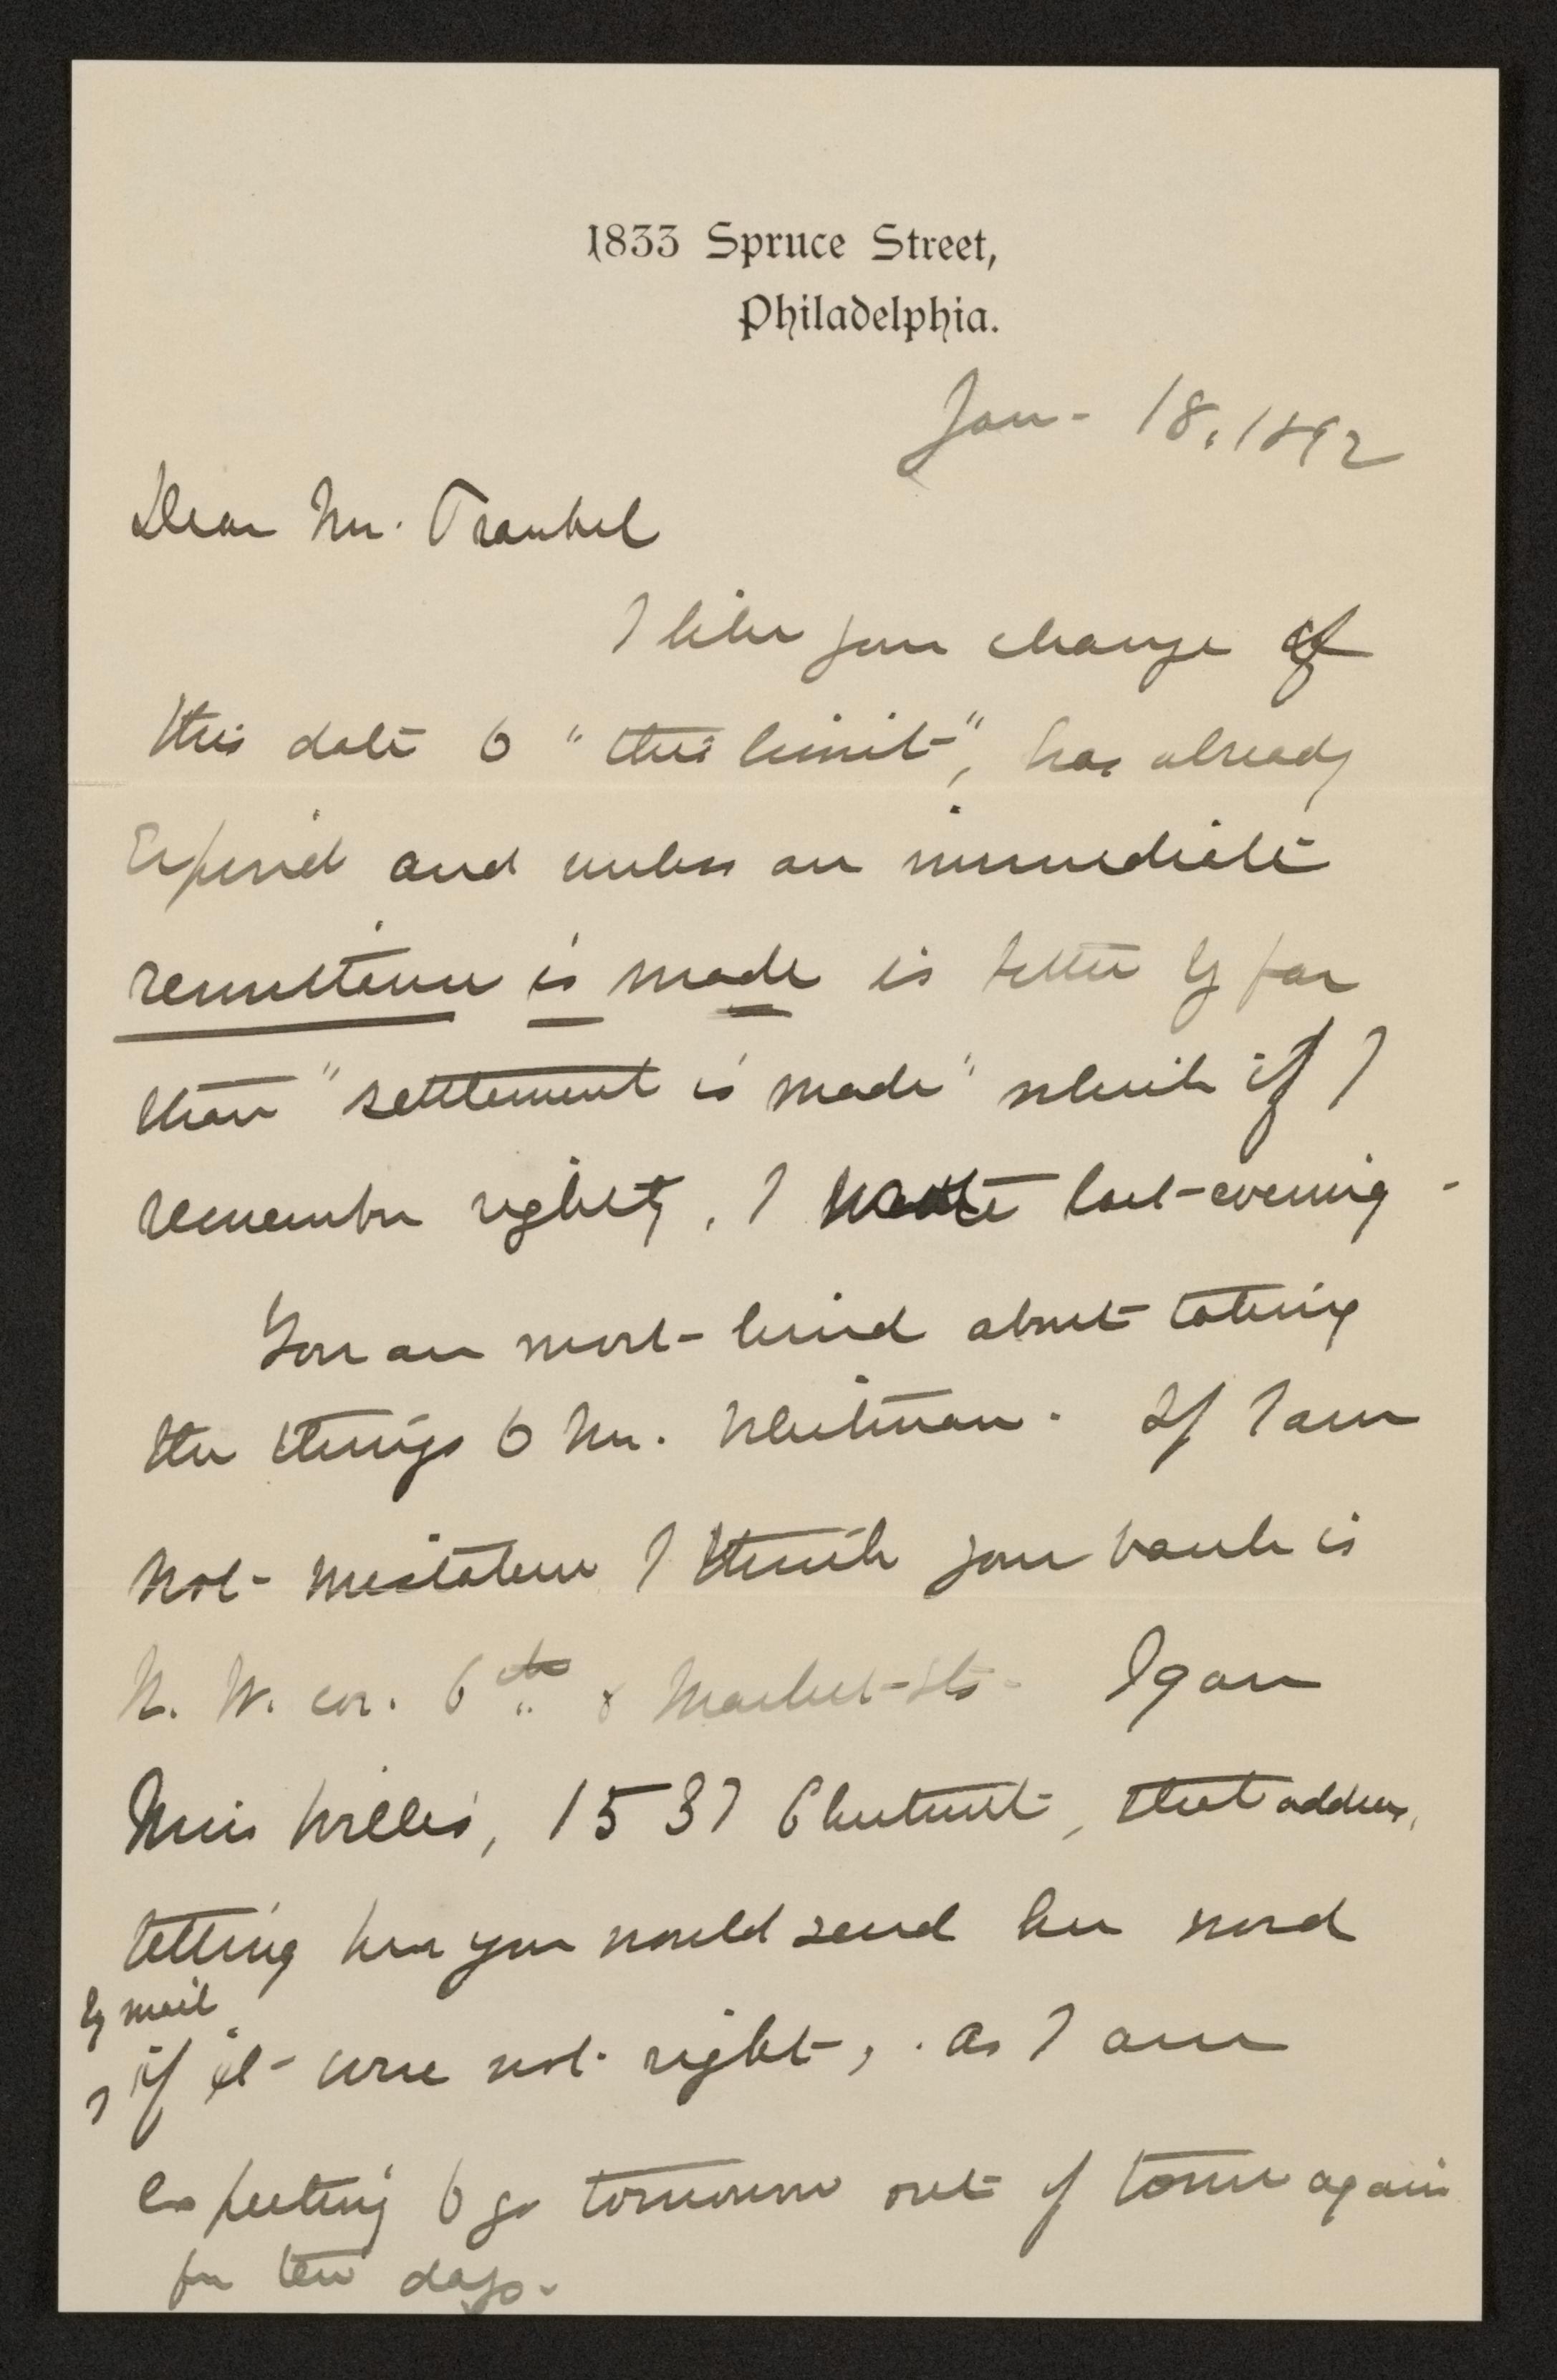 1833 Spruce Street,
Philadelphia.
Jan- 18, 1892
Dear Mr. Traubel
I like your change of
this date to "this limit", has already
Expired and unless an immediate
remittance is made is better by far
than "settlement is made" which if I
remember rightly, I wrote last-evening-
You are most-kind about taking
the things to Mr. Whitman. If I am
not-mistaken I think your bank is
N. W. cor. 6th & Market-Sts- I gave
Miss Willis, 1537 Chestnut, that address,
telling her you would send her word
by mail
, if it-were not right-, as I am
expecting to go tomorrow out of town again
for ten days.